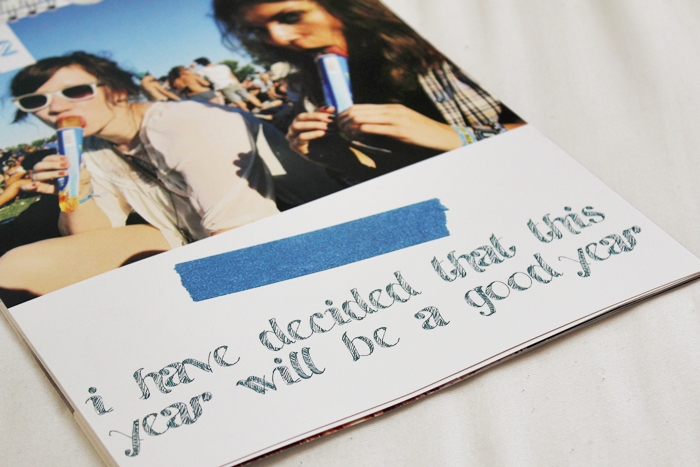 i have decided that this
year will be a good year